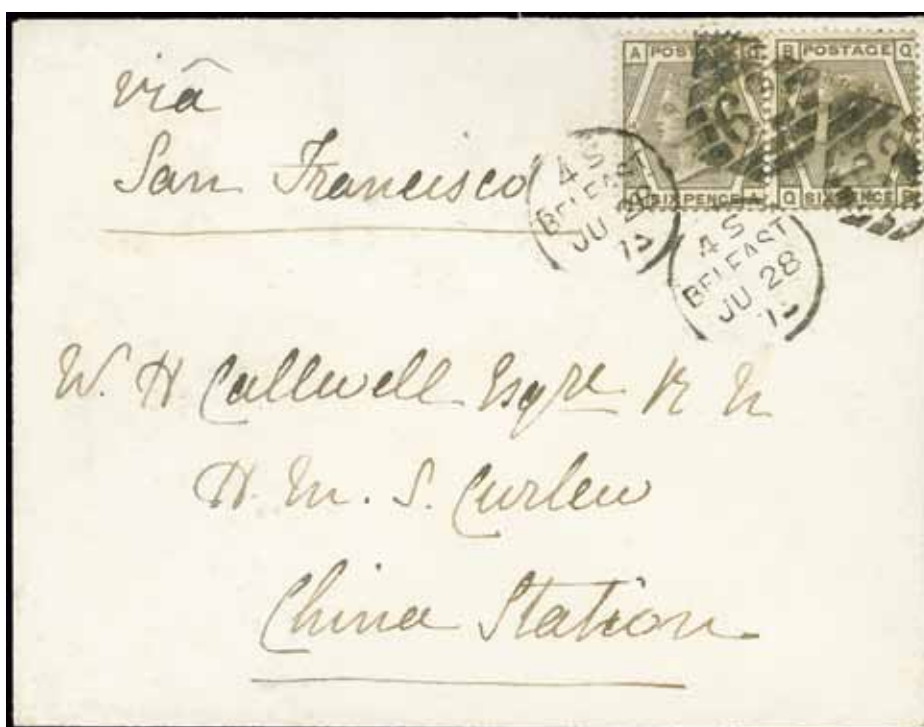 viâ
San Francisco
A POSTAGE Q
B POSTAGE Q
Q SIXPENCE A
Q SIXPENCE B
62
4 S
BELFAST
JU 28
73
4 S
BELFAST
JU 28
73
W. H Callwell Esqre R N
H. M. S. Curlew
China Station